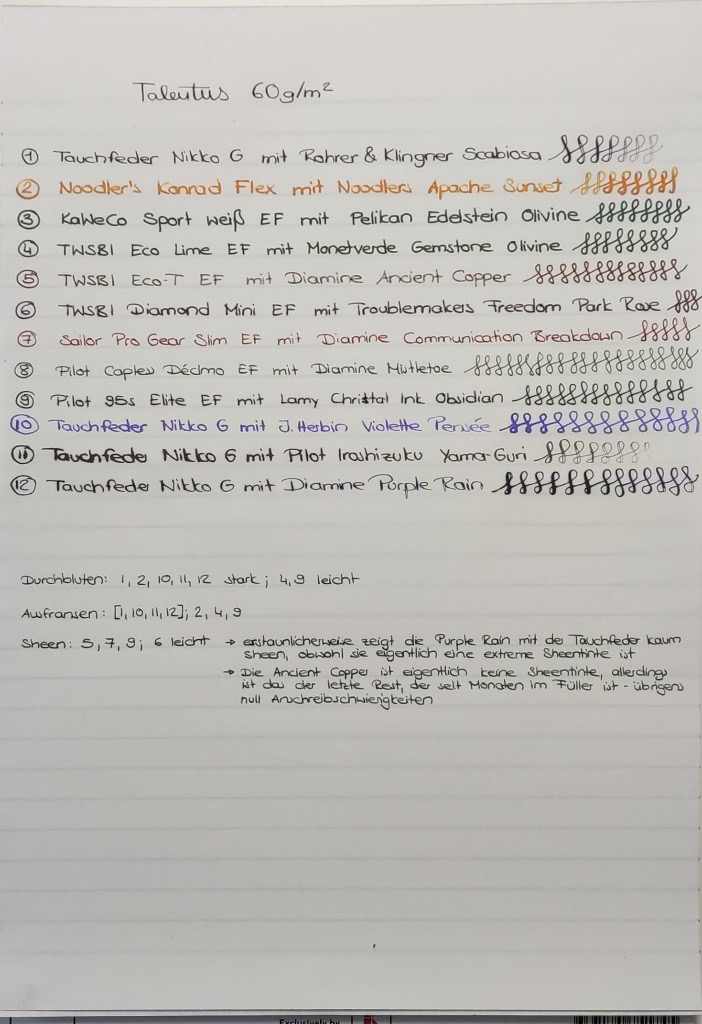 Talentus 60g/m²
① Tauchfeder Nikko G mit Rohrer & Klingner Scabiosa
② Noodler's Konrad Flex mit Noodlers Apache Sunset
③ KaWeCo Sport weiß EF mit Pelikan Edelstein Olivine
④ TWSBI Eco Lime EF mit Monetverde Gemstone Olivine
⑤ TWSBI Eco-T EF mit Diamine Ancient Copper
⑥ TWSBI Diamond Mini EF mit Troublemakers Freedom Park Rose
⑦ Sailor Pro Gear Slim EF mit Diamine Communication Breakdown
⑧ Pilot Capless Décimo EF mit Diamine Mistletoe
⑨ Pilot 95s Elite EF mit Lamy Christal Ink Obsidian
⑩ Tauchfeder Nikko G mit J.Herbin Violette Pensée
⑪ Tauchfeder Nikko G mit Pilot Iroshizuku Yama-Guri
⑫ Tauchfeder Nikko G mit Diamine Purple Rain
Durchbluten: 1, 2, 10, 11, 12 stark; 4, 9 leicht
Ausfransen: [1, 10, 11, 12]; 2, 4, 9
Sheen: 5, 7, 9; 6 leicht → erstaunlicherweise zeigt die Purple Rain mit des Tauchfeder kaum
Sheen, obwohl sie eigentlich eine extreme Sheentinte ist
→ Die Ancient Copper ist eigentlich keine Sheentinte, allerdings
ist das der letzte Rest, der seit Monaten im Füller ist - übrigens
null Anschreibschwierigkeiten
Exclusively by